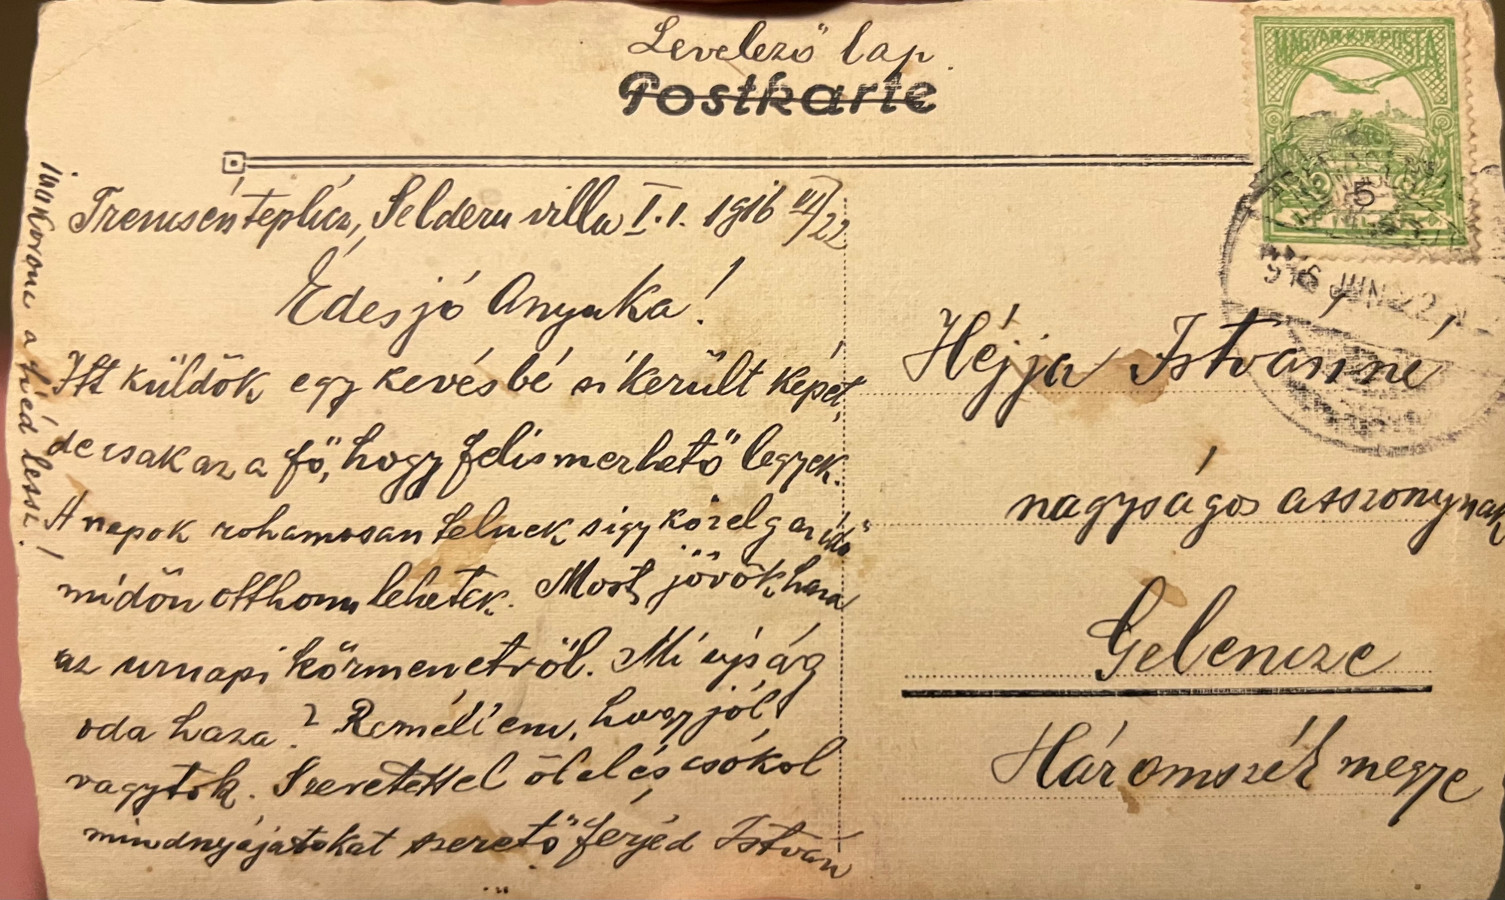 Levelező lap.
Postkarte
MAGYAR KIR. POSTA
5
916 JUN 22
Trencsénteplicz, villa I. 1. 1916 VI/22
Édes jó Anyuka!
Itt küldök egy kevésbé sikerült képet,
de csak az a fő, hogy felismerhető legyek.
A napok rohamosan telnek s igy közelg az idő
midőn otthon lehetek. Most jövök haza
az urnapi körmenetről. Mi ujság
oda haza? Remélem, hogy jól
vagytok. Szeretettel ölel és csókol
mindnyájatokat szerető férjed István
a tiéd lessz!
Héjja Istvánné
nagyságos asszonynak
Gelencze
Háromszék megye